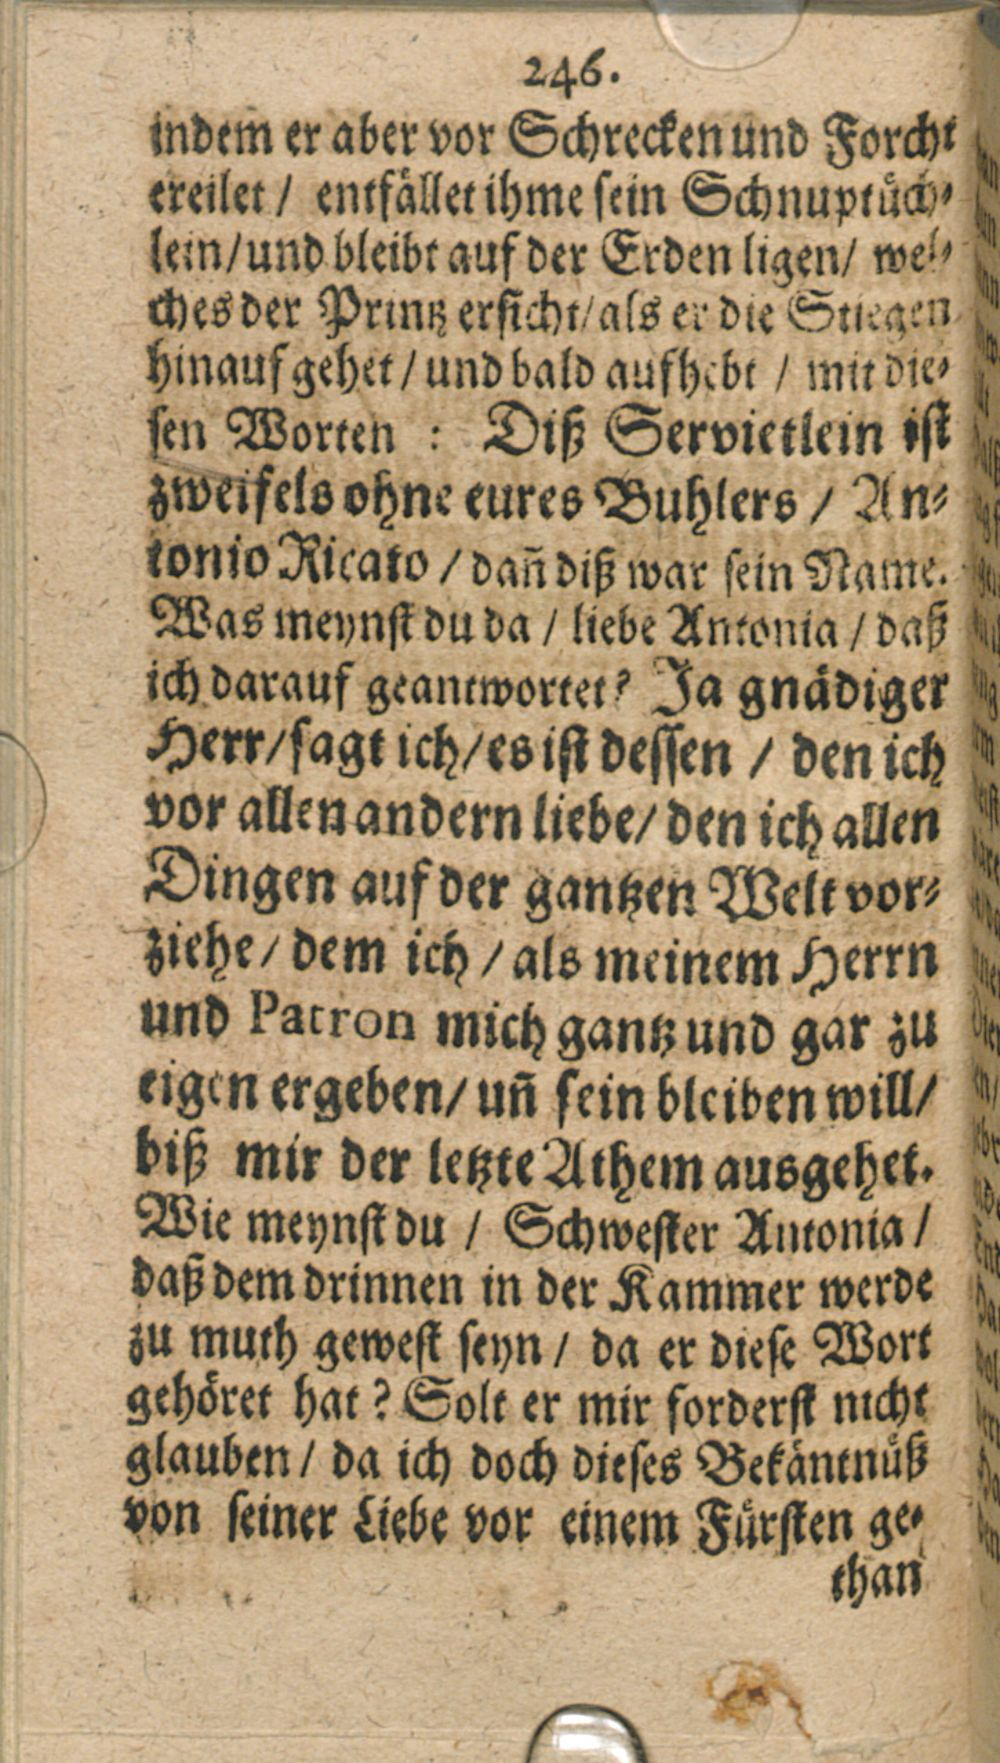 246.
indem er aber vor Schrecken und Forcht
ereilet / entfället ihme sein Schnuptüch-
lein / und bleibt auf der Erden ligen / wel-
ches der Printz ersicht / als er die Stiegen
hinauf gehet / und bald aufhebt / mit die-
sen Worten : Diß Servietlein ist
zweifels ohne eures Buhlers / An-
tonio Ricato / dañ diß war sein Name.
Was meynst du da / liebe Antonia / daß
ich darauf geantwortet? Ja gnädiger
Herr / sagt ich / es ist dessen / den ich
vor allen andern liebe / den ich allen
Dingen auf der gantzen Welt vor-
ziehe / dem ich / als meinem Herrn
und Patron mich gantz und gar zu
eigen ergeben / uñ sein bleiben will /
biß mir der letzte Athem ausgehet.
Wie meynst du / Schwester Antonia /
daß dem drinnen in der Kammer werde
zu muth gewest seyn / da er diese Wort
gehöret hat? Solt er mir forderst nicht
glauben / da ich doch dieses Bekäntnüß
von seiner Liebe vor einem Fürsten ge-
than